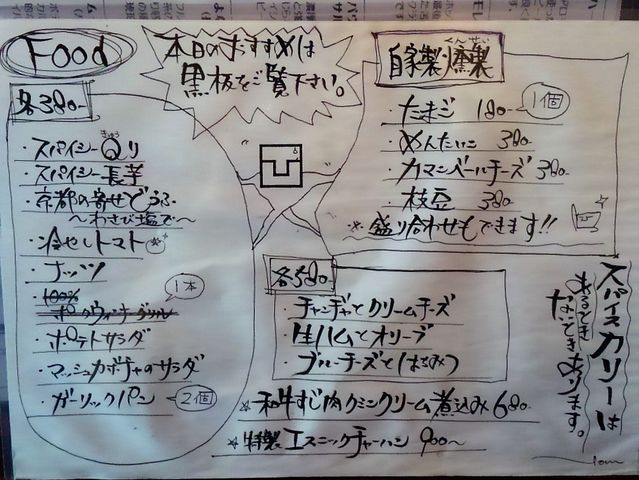 Food
本日のおすすめは
黒板をご覧下さい。
各380-
・スパイシーQり
きゅう
・スパイシー長芋
・京都の寄せどうふ
〜わさび塩で〜
・冷やしトマト
・ナッツ
・100%
ポークウィンナーグリル
1本
・ポテトサラダ
・マッシュカボチャのサラダ
・ガーリックパン 2個
自家製燻製
くんせい
・たまご 180- 1個
・めんたいこ 380-
・カマンベールチーズ 380-
・枝豆 380-
※盛り合わせもできます!!
各580-
・チャンジャとクリームチーズ
・生ハムとオリーブ
・ブルーチーズとはちみつ
☆和牛すじ肉クミンクリーム煮込み 680-
☆特製エスニックチャーハン 900〜
スパイスカリーは
あるとき
ないときあります。